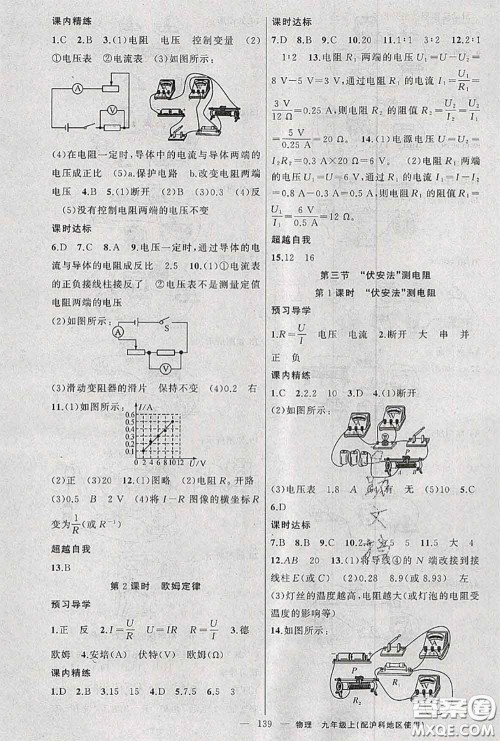 课内精练
1.C 2.B 3.(1)电阻 电压 控制变量 (2)
①电压表 ②电流表 (3)如图所示:
A
V
(4)在电阻一定时,导体中的电流与导体两端的
电压成正比 (5)a.保护电路 b.改变电阻两端的
电压 4.B 5.(1)不变 (2)0.3 (3)0.4 (4)反
(5)没有控制电阻两端的电压不变
课时达标
6.D 7.C 8.A 9.电压一定时,通过导体的电
流与导体的电阻成反比 2.5 10.(1)①电流表
的正负接线柱接反了 ②电压表不是测量定值
电阻两端的电压
(2)如图所示:
A
S
V
(3)滑动变阻器的滑片 保持不变 (4)0.2 右
11.(1)如图所示:
I/A
0.6
0.5
0.4
0.3
0.2
0.1
0 2 4 6 8 10 12 U/V
(2)正 (3)20 12.(1)如图所示:
(3)0.5 B 2 V (4)将 I—R 图像的横坐标 R
变为1/R(或 R⁻¹)
超越自我
13.B
第 2 课时 欧姆定律
预习导学
1.正 反 2.I=U/R U=IR R=U/I 3.德
欧姆 4.安培(A) 伏特(V) 欧姆(Ω)
课内精练
1.D 2.A 3.20 0.45 4.15 5.D 6.B
课时达标
7.D 8.B 9.C 10.1∶2 1∶2 11.1∶1
1∶3 12.6 13.电阻 R₁ 两端的电压 U₁=U−U₂=
8 V−5 V=3 V,则电阻 R₁ 的电流 I₁=U₁/R₁=
3 V/12 Ω=0.25 A,则电阻 R₂ 的阻值 R₂=U₂/I₂=U₂/I₁=
5 V/0.25 A=20 Ω。 14.(1)电源电压 U=U₂=
I₂R₂=0.3 A×20 Ω=6 V。 (2)电阻 R₁ 的电流
I₁=I−I₂=0.8 A−0.3 A=0.5 A,电阻 R₁ 的阻值 R₁=
U₁/I₁=U/I₁=6 V/0.5 A=12 Ω。
超越自我
15.12 16
第三节 “伏安法”测电阻
第 1 课时 “伏安法”测电阻
预习导学
1.R=U/I 电压 电流 2.断开 大 串 并
正 负
课内精练
1.C 2.2.5 0.5 5 3.C 4.(1)断开
(2)如图所示:
(3)电压表 (4)右 有 无 (5)10 5.C
6.D
课时达标
7.B 8.B 9.C 10.29.5 11.(1)断开
12.AB 20 13.(1)将导线④的 N 端改接到接
线柱 E(或 C) (2)0.3
(3)灯丝的温度越高,电阻越大(或灯泡的电阻受
温度的影响等)
14.(1)如图所示:
139 物理 九年级上(配沪科地区使用)